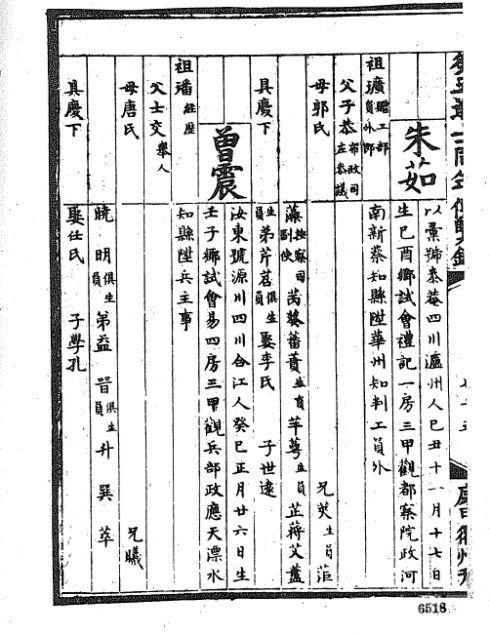 朱茹
以彙號泰菴四川瀘州人己丑十一月十七日
生己酉鄉試會禮記一房三甲觀都察院政河
南新蔡知縣陞華州知判工員外
祖璣贈工部員外郎
父子恭布政司左參議
母郭氏
具慶下
兄英生員范
藻按察司副使
芮葵蕃蕡生員
芊萼生員
芷蔣艾藎
生員弟芹茗俱生員
娶李氏
子世遠
曾震
汝東號源川四川合江人癸巳正月廿六日生
壬子鄉試會易四房三甲觀兵部政應天溧水
知縣陞兵主事
祖璠經歷
父士交舉人
母唐氏
具慶下
兄曦
曉明俱生員弟益晉俱生員升巽萃
娶任氏
子學孔
6518